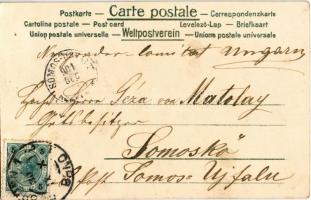 Postkarte — Carte postale — Correspondenzkarte
Cartolina postale — Post card Levelező-Lap — Briefkaart
Union postale universelle — Weltpostverein — Unione postale universale
Comitat Ungarn
Geza von Matolay
Gutsbesitzer
Somoskö
Post Somos-Ujfalu